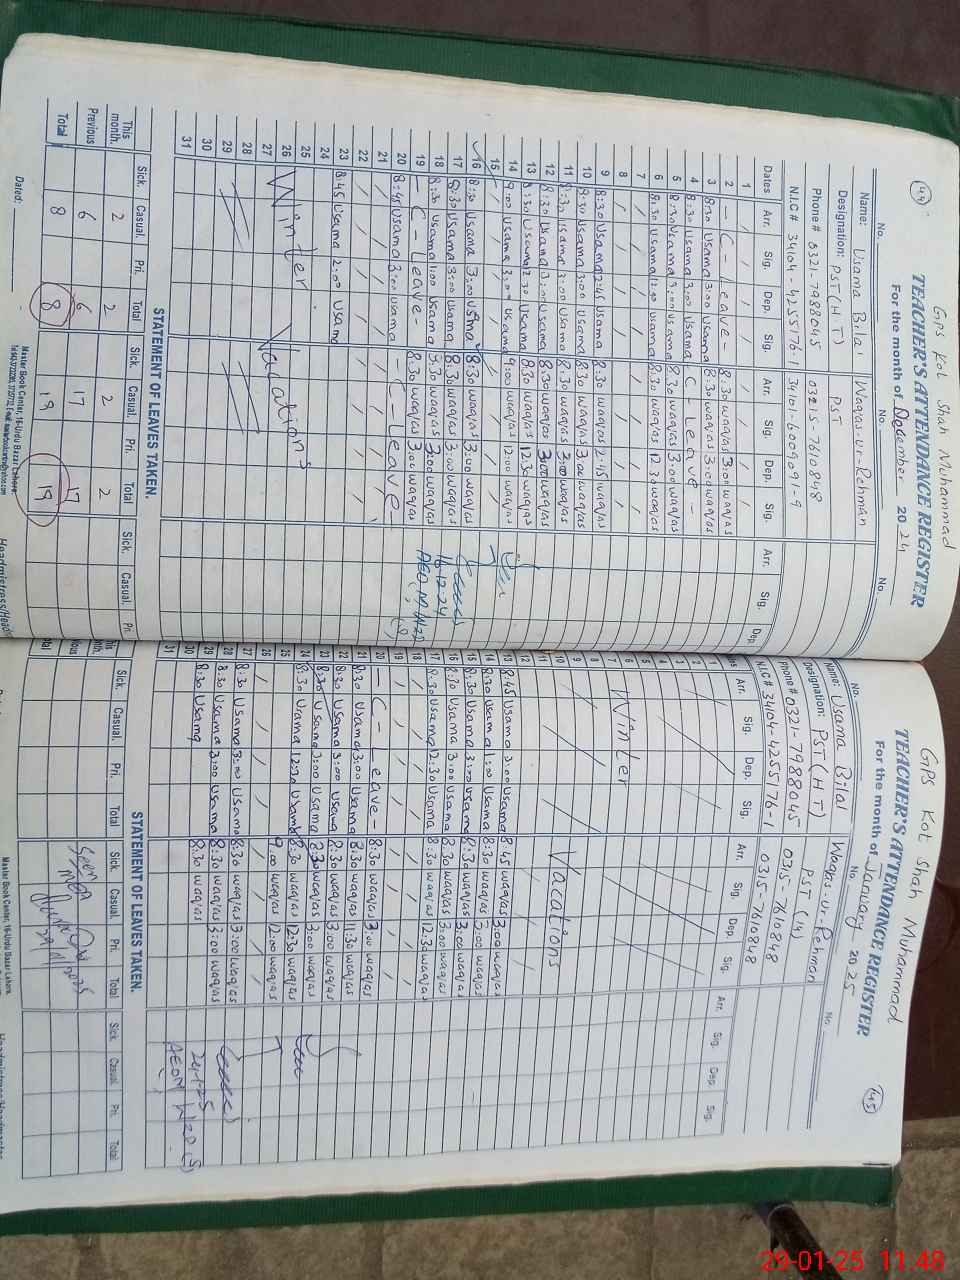 44
GPS Kot Shah Muhammad
TEACHER'S ATTENDANCE REGISTER
For the month of December 2024
No. No. No.
Name: Usama Bilal Waqas-ur-Rehman
Designation: PST (HT) PST
Phone # 0321-7988045 0315-7610848
N.I.C # 34104-4255176-1 34101-6009091-9
Dates Arr. Sig. Dep. Sig. Arr. Sig. Dep. Sig. Arr. Sig. Dep
1
2 - C - Leave - 8:30 waqas 3:00 waqas
3 8:30 Usama 3:00 Usama 8:30 waqas 3:00 waqas
4 8:30 Usama 3:00 Usama - C - Leave -
5 8:30 Usama 3:00 Usama 8:30 waqas 3:00 waqas
6 8:30 Usama 12:00 Usama 8:30 waqas 12:30 waqas
7
8
9 8:30 Usama 2:45 Usama 8:30 waqas 2:45 waqas
10 8:30 Usama 3:00 Usama 8:30 waqas 3:00 waqas
11 8:30 Usama 3:00 Usama 8:30 waqas 3:00 waqas
12 8:30 Usama 3:00 Usama 8:30 waqas 3:00 waqas
13 8:30 Usama 12:30 Usama 8:30 waqas 12:30 waqas
14 9:00 Usama 3:00 Usama 9:00 waqas 12:00 waqas
15
16 8:30 Usama 3:00 Usama 8:30 waqas 3:00 waqas
17 8:30 Usama 3:00 Usama 8:30 waqas 3:00 waqas
18 8:30 Usama 1:00 Usam 8:30 waqas 3:00 waqas
16-12-24
19 - C - Leave - 8:30 waqas 3:00 waqas
AEO M W22 (S)
20 8:45 Usama 3:00 Usama - C - Leave -
21
22
23 8:45 Usama 2:00 Usama
24
25
26 Winter Vacations
27
28
29
30
31
STATEMENT OF LEAVES TAKEN.
Sick. Casual. Pri. Total Sick. Casual. Pri. Total Sick. Casual. Pri
This month. 2 2 2 2
Previous 6 6 17 17
Total 8 8 19 19
Dated:
Master Book Center, 16-Urdu Bazar Lahore.
45
GPS Kot Shah Muhammad
TEACHER'S ATTENDANCE REGISTER
For the month of January 2025
No. No. No
Name: Usama Bilal Waqas-ur-Rehman
Designation: PST (HT) PST (4)
Phone # 0321-7988045 0315-7610848
N.I.C # 34104-4255176-1 0315-7610848
Arr. Sig. Dep. Sig. Arr. Sig. Dep. Sig. Arr. Sig. Dep. Sig.
1
2
3
4
5
6
7 Winter
8
9
10 Vacations
11
12
13 8:45 Usama 3:00 Usama 8:45 waqas 3:00 waqas
14 8:30 Usama 1:00 Usama 8:30 waqas 3:00 waqas
15 8:30 Usama 3:00 Usama 8:30 waqas 3:00 waqas
16 8:30 Usama 3:00 Usama 8:30 waqas 3:00 waqas
17 8:30 Usama 12:30 Usama 8:30 waqas 12:30 waqas
18
19
20 - C - Leave - 8:30 waqas 3:00 waqas
21 8:30 Usama 3:00 Usama 8:30 waqas 11:30 waqas
22 8:30 Usama 3:00 Usama 8:30 waqas 3:00 waqas
23 8:30 Usama 3:00 Usama 8:30 waqas 3:00 waqas
24 8:30 Usama 12:30 Usama 8:30 waqas 12:30 waqas
25 9:00 waqas 12:00 waqas
26
27 8:30 Usama 3:00 Usama 8:30 waqas 3:00 waqas
28 8:30 Usama 3:00 Usama 8:30 waqas 3:00 waqas
29 8:30 Usama 8:30 waqas
24-1-25
30
AEO M W22 (S)
31
STATEMENT OF LEAVES TAKEN.
Sick. Casual. Pri. Total Sick. Casual. Pri. Total Sick. Casual. Pri. Total
Seen
MEA
Master Book Center, 16-Urdu Bazar Lahore.
29-01-25 11:48